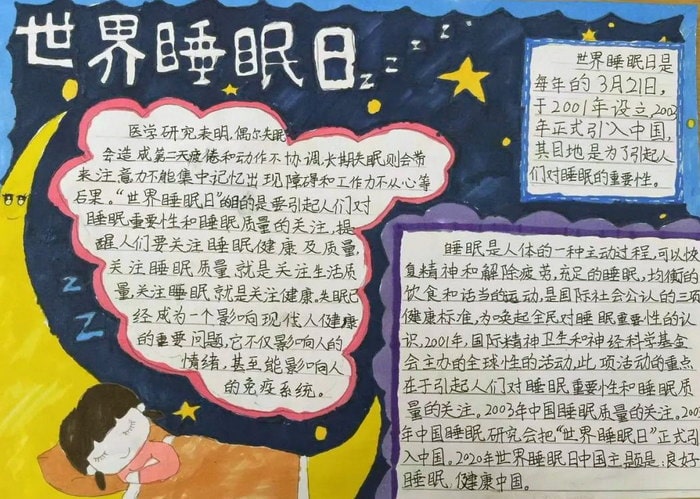 世界睡眠日
z z z z z z
世界睡眠日是
每年的3月21日,
于2001年设立,200
年正式引入中国,
其目地是为了引起人
们对睡眠的重要性。
医学研究表明,偶尔失眠
会造成第二天疲倦和动作不协调,长期失眠则会带
来注意力不能集中记忆出现障碍和工作力不从心等
后果。“世界睡眠日”的目的是要引起人们对
睡眠重要性和睡眠质量的关注,提
醒人们要关注睡眠健康及质量,
关注睡眠质量就是关注生活质
量,关注睡眠就是关注健康。失眠已
经成为一个影响现代人健康
的重要问题,它不仅影响人的
情绪,甚至能影响人
的免疫系统。
z
Z
睡眠是人体的一种主动过程,可以恢
复精神和解除疲劳,充足的睡眠,均衡的
饮食和适当的运动,是国际社会公认的三项
健康标准,为唤起全民对睡眠重要性的认
识,2001年,国际精神卫生和神经科学基金
会主办的全球性的活动,此项活动的重点
在于引起人们对睡眠重要性和睡眠质
量的关注。2003年中国睡眠质量的关注。200
年中国睡眠研究会把“世界睡眠日”正式引
入中国。2020年世界睡眠日中国主题是:良好
睡眠,健康中国。